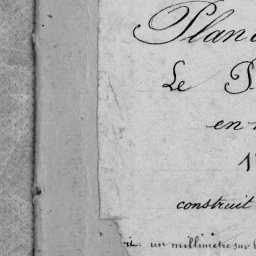 Plan
Le P
en
1
construit
un millimètre sur